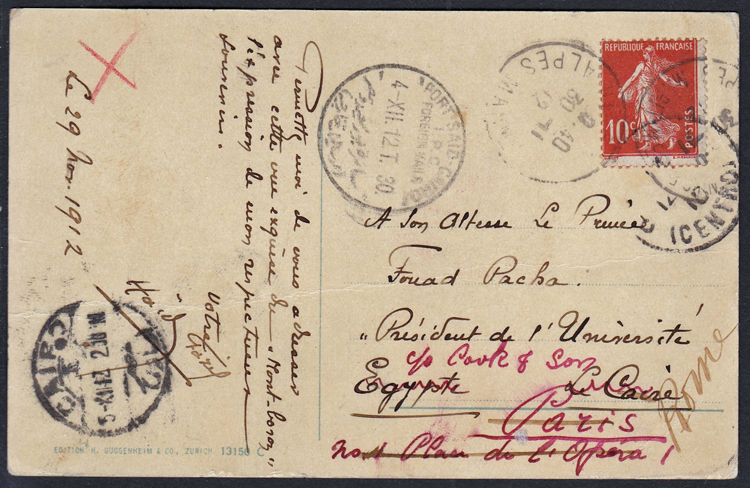 Le 29 Nov. 1912
Permettez moi de vous adresser
avec cette vue exquise du "Mont-boron"
l'expression de mon respectueux
souvenir.
Votre
REPUBLIQUE FRANÇAISE
10c
POSTES
ALPES
30
12
PORT-SAID-CAIRO
T.P.O.
FOREIGN MAILS
4-XII.12.T.30
(CENTRO)
A Son Altesse Le Prince
Fouad Pacha.
"Président de l'Université
c/o Cook & Son
Egypte Le Caire
Rome
Paris
No. 1 Place de l'Opéra 1
CAIRO
5-XII.12 2.30 M
EDITION H. GUGGENHEIM & CO., ZURICH 13150 C